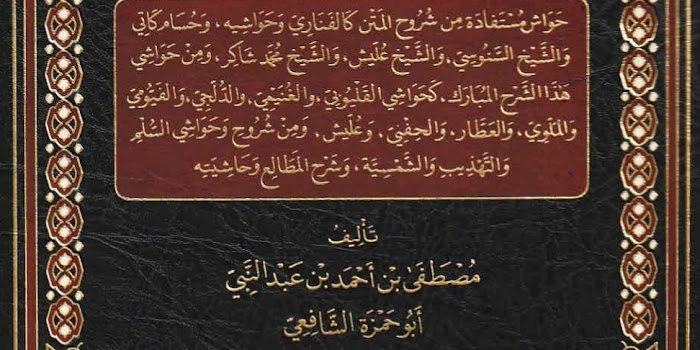 حَوَاشٍ مُسْتَفَادَة مِن شُرُوحِ المَتْن كَالفَنَارِي وَحَوَاشِيه، وَحُسَام كَاتِي
وَالشَّيْخ السَّنُوسِيّ، وَالشَّيْخ عُلَيْش، وَالشَّيْخ مُحَمَّد شَاكِر، وَمِنْ حَوَاشِي
هَذَا الشَّرْح المُبَارَك، كَحَوَاشِي القَلْيُوبِيّ، وَالغُنَيْمِيّ، وَالدُّلْجِيّ، وَالفَيُّومِي
وَالمَلَّوِيّ، وَالعَطَّار، وَالحِفْنِيّ، وَعُلَيْش، وَمِنْ شُرُوحِ وَحَوَاشِي السُّلَّم
وَالتَّهْذِيب وَالشَّمْسِيَّة، وَشَرْح المَطَالِع وَحَاشِيَتِه
تَأْلِيفُ
مُصْطَفَى بْن أَحْمَد بْن عَبْد النَّبِيّ
أَبُو حَمْزَة الشَّافِعِيّ